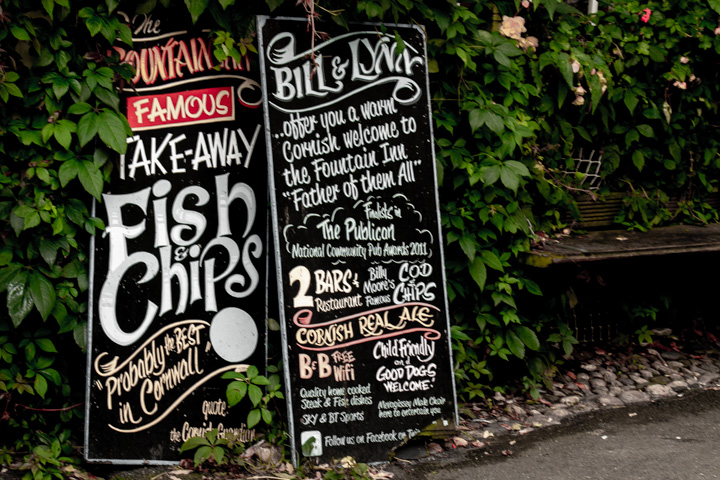 The
FOUNTAIN
FAMOUS
TAKE-AWAY
Fish
&
Chips
"Probably the BEST
in Cornwall"
quote
the Cornish Guardian
BILL & LYNN
...offer you a warm
Cornish welcome to
the Fountain Inn
"Father of them All"
Finalists in
The Publican
National Community Pub Awards 2011
2 BARS &
Restaurant
Billy
Moore's
Famous
COD
&
CHIPS
CORNISH REAL ALE
B&B FREE
WiFi
Child Friendly
and
GOOD DOGS
WELCOME
Quality home cooked
Steak & Fish dishes
SKY & BT Sports
Mevagissey Male Choir
here to entertain you
Follow us on Facebook on